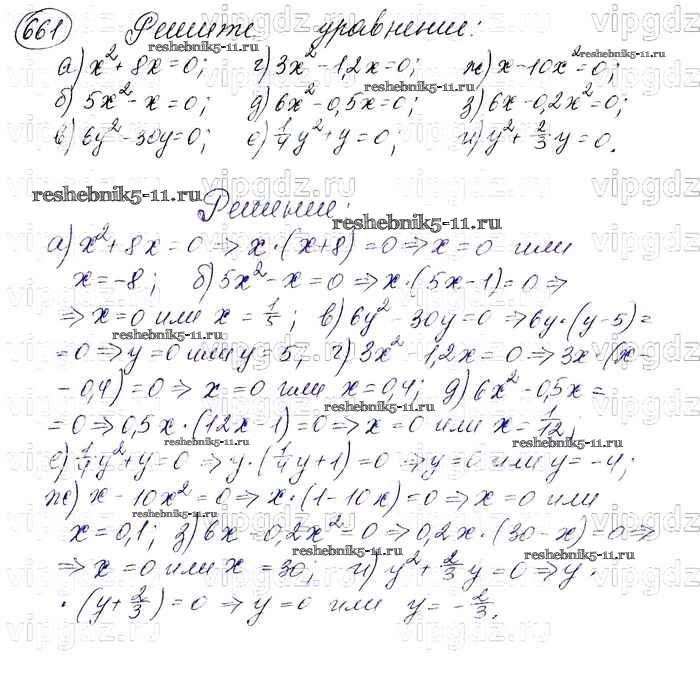 661 Решите уравнение:
а) x²+8x=0; г) 3x²-1,2x=0; ж) x-10x²=0;
б) 5x²-x=0; д) 6x²-0,5x=0; з) 6x-0,2x²=0;
в) 6y²-30y=0; е) 1/4y²+y=0; и) y²+2/3y=0.
Решение:
а) x²+8x=0⇒x·(x+8)=0⇒x=0 или
x=-8; б) 5x²-x=0⇒x·(5x-1)=0⇒
⇒x=0 или x=1/5; в) 6y²-30y=0⇒6y·(y-5)=
=0⇒y=0 или y=5; г) 3x²-1,2x=0⇒3x·(x-
-0,4)=0⇒x=0 или x=0,4; д) 6x²-0,5x=
=0⇒0,5x·(12x-1)=0⇒x=0 или x=1/12;
е) 1/4y²+y=0⇒y·(1/4y+1)=0⇒y=0 или y=-4;
ж) x-10x²=0⇒x·(1-10x)=0⇒x=0 или
x=0,1; з) 6x-0,2x²=0⇒0,2x·(30-x)=0⇒
⇒x=0 или x=30; и) y²+2/3y=0⇒y·
·(y+2/3)=0⇒y=0 или y=-2/3.
reshebnik5-11.ru
vipgdz.ru